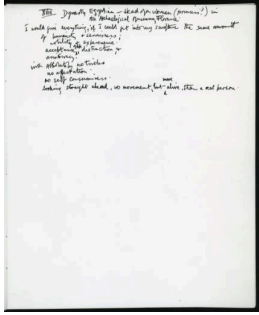 XIIth Dynasty Egyptian – Head of a woman (princess?) in
the Archaeological Museum, Florence
I would give everything, if I could get into my sculpture the same amount
of humanity & seriousness;
nobility & experience,
acceptance of, distraction, &
with absolutely no tricks
no affectation
no self consciousness
looking straight ahead, no movement, but more alive, than a real person